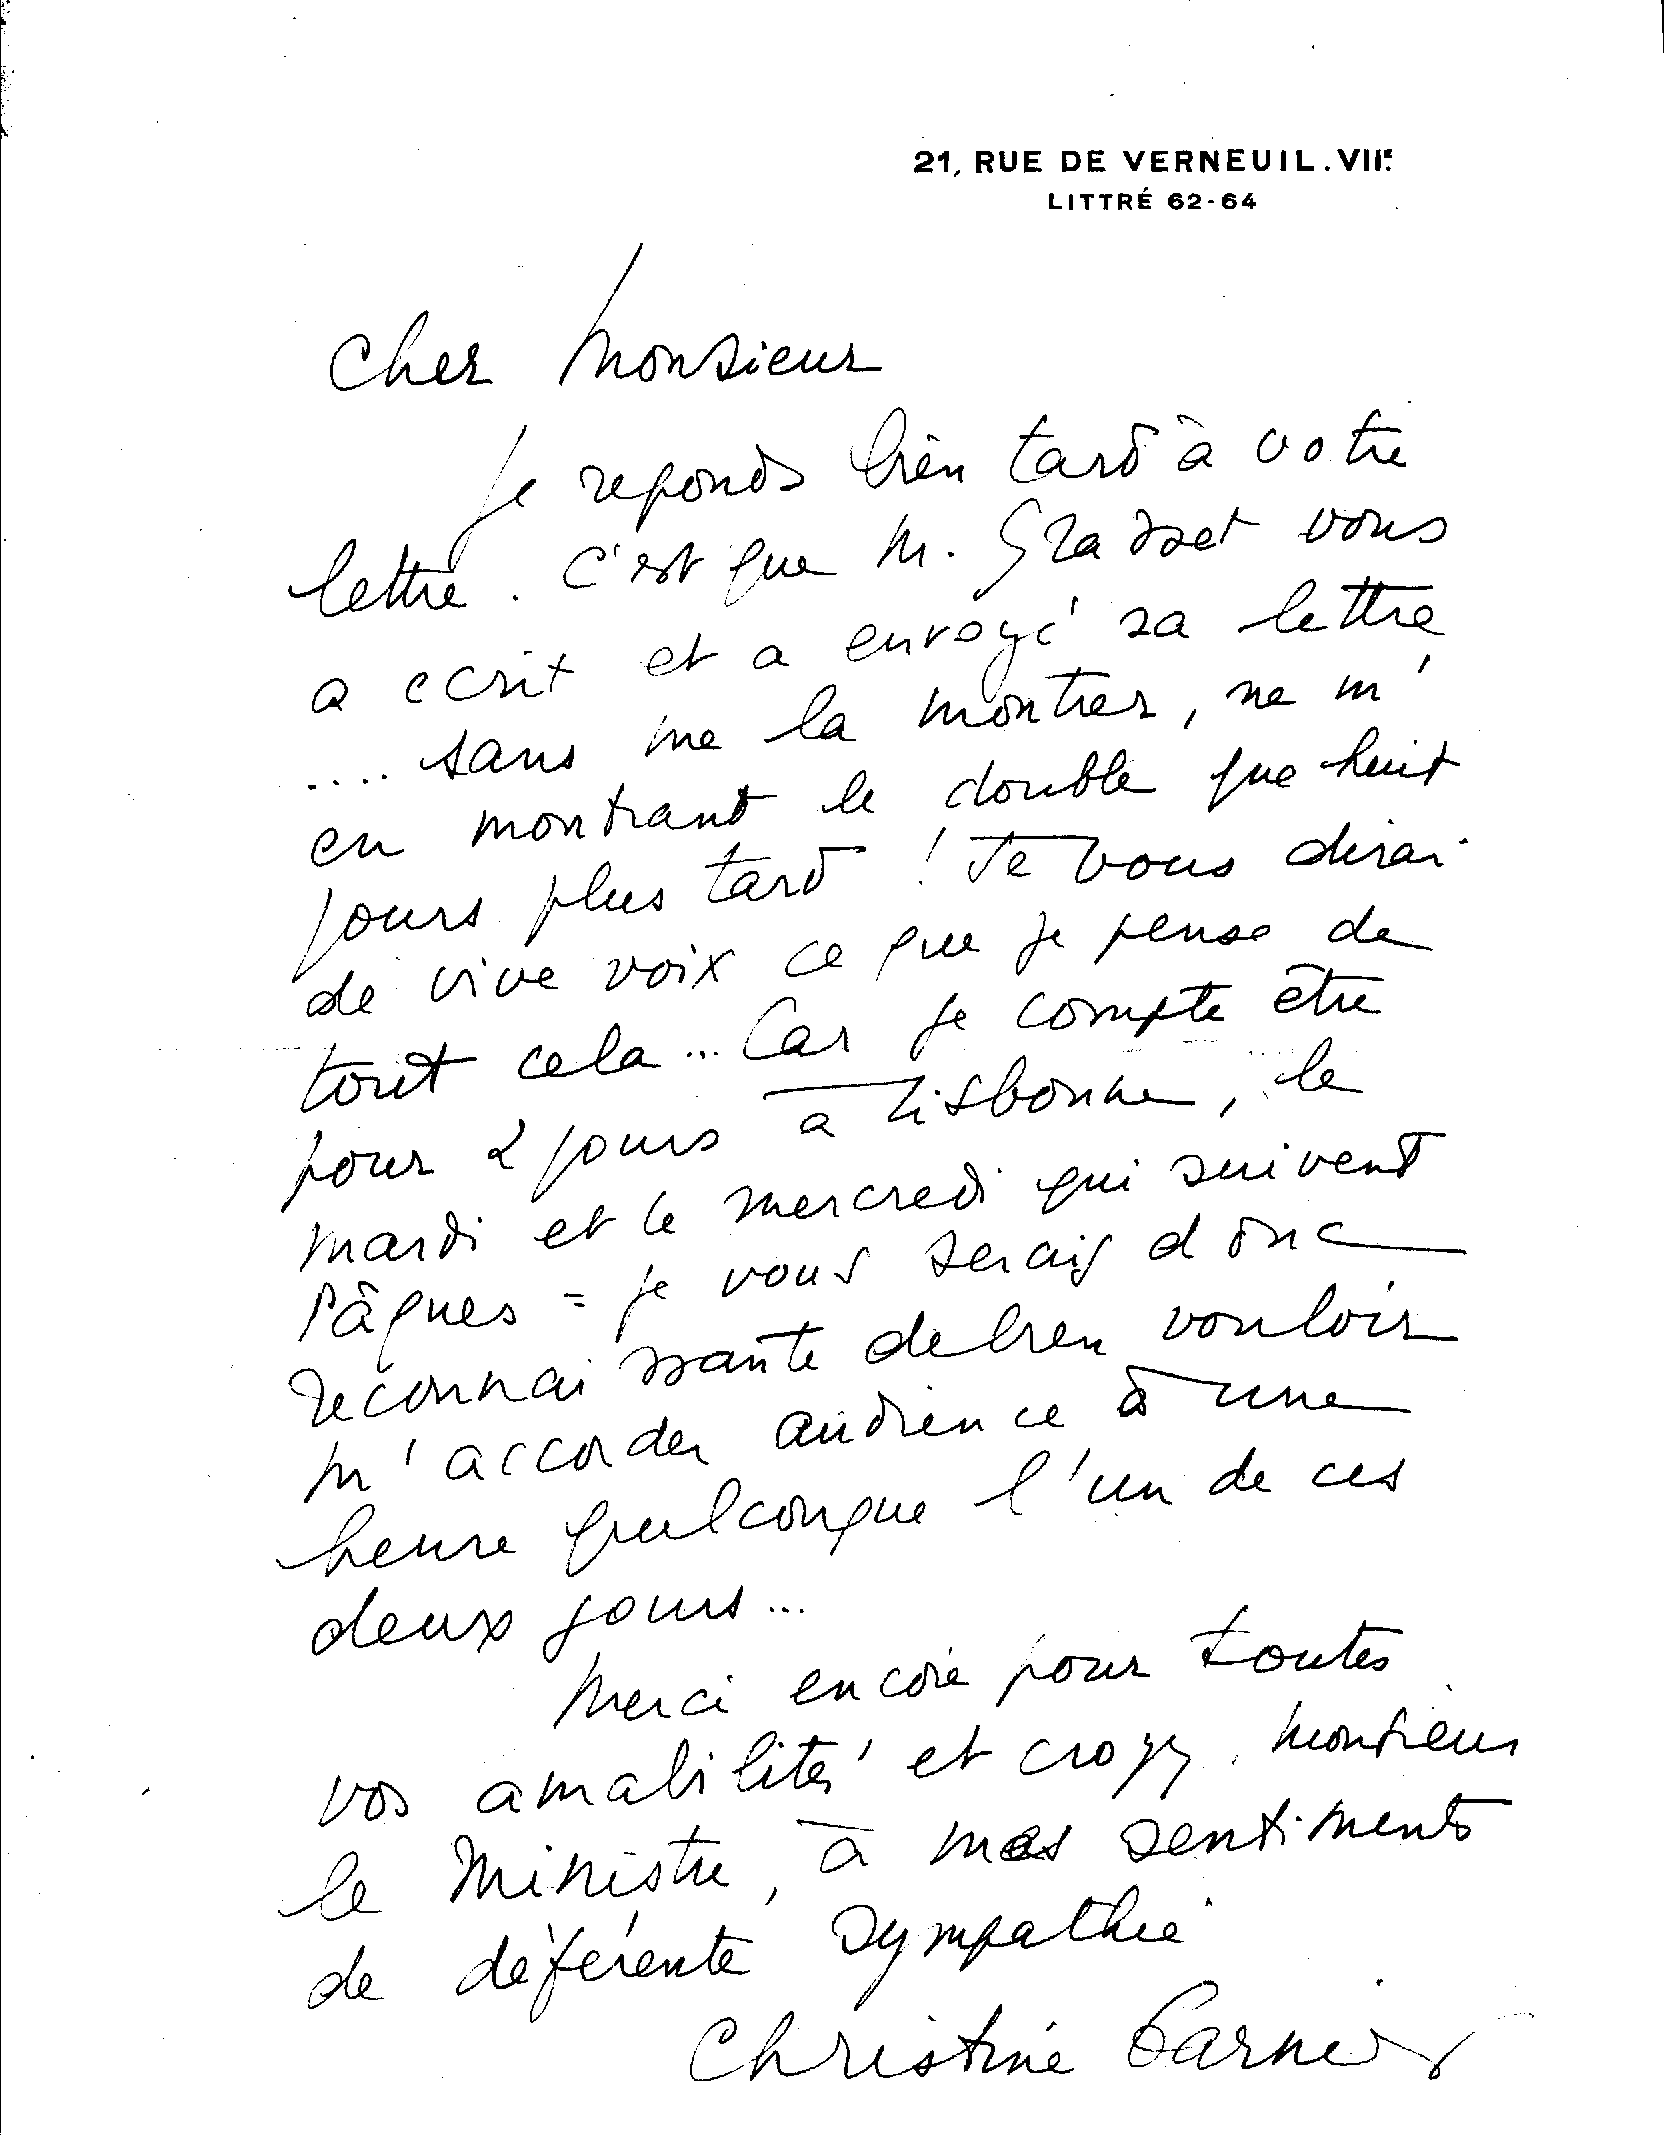 21, RUE DE VERNEUIL. VIIe
LITTRÉ 62-64
Cher Monsieur
Je reponds bien tard à votre
lettre. C'est que M. Grasset vous
a ecrit et a envoyé sa lettre
.... sans me la montrer, ne m'
en montrant le double que huit
jours plus tard ! Je vous dirai
de vive voix ce que je pense de
tout cela... Car je compte être
pour 2 jours à Lisbonne, le
mardi et le mercredi qui suivent
Pâques = je vous serais donc
reconnaissante de bien vouloir
m'accorder audience à une
heure quelconque l'un de ces
deux jours...
Merci encore pour toutes
vos amabilités et croyez, Monsieur
le Ministre, à mes sentiments
de déférente sympathie
Christine Garnier